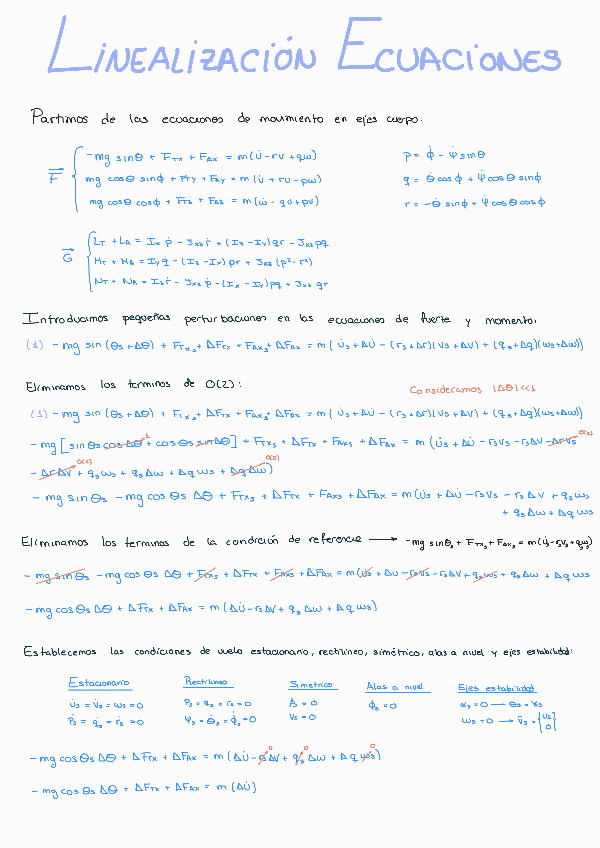 LINEALIZACIÓN ECUACIONES
Partimos de las ecuaciones de movimiento en ejes cuerpo:
F⃗ { -mg sinθ + F_Tx + F_Ax = m(U̇ - rV + qω)
mg cosθ sinϕ + F_Ty + F_Ay = m(V̇ + rU - pω)
mg cosθ cosϕ + F_Tz + F_Az = m(ω̇ - qU + pV)
p = ϕ̇ - ψ̇ sinθ
q = θ̇ cosϕ + ψ̇ cosθ sinϕ
r = -θ̇ sinϕ + ψ̇ cosθ cosϕ
G⃗ { L_T + L_A = I_x ṗ - J_xz ṙ + (I_z - I_y) qr - J_xz pq
M_T + M_A = I_y q̇ - (I_z - I_x) pr + J_xz (p² - r²)
N_T + N_A = I_z ṙ - J_xz ṗ - (I_x - I_y) pq + J_xz qr
Introducimos pequeñas perturbaciones en las ecuaciones de fuerte y momento:
(1) -mg sin(θs+Δθ) + F_Txs + ΔF_Tx + F_Axs + ΔF_Ax = m(U̇s + ΔU̇ - (rs+Δr)(Vs+ΔV) + (qs+Δq)(ωs+Δω))
Eliminamos los terminos de O(2):
Consideramos |Δθ|<<1
(1) -mg sin(θs+Δθ) + F_Txs + ΔF_Tx + F_Axs + ΔF_Ax = m(U̇s + ΔU̇ - (rs+Δr)(Vs+ΔV) + (qs+Δq)(ωs+Δω))
-mg[sinθs cosΔθ + cosθs sinΔθ] + F_Txs + ΔF_Tx + F_Axs + ΔF_Ax = m(U̇s + ΔU̇ - rsVs - rsΔV - ΔrVs
- ΔrΔV + qsωs + qsΔω + Δqωs + ΔqΔω)
-mg sinθs - mg cosθs Δθ + F_Txs + ΔF_Tx + F_Axs + ΔF_Ax = m(U̇s + ΔU̇ - rsVs - rsΔV + qsωs
+ qsΔω + Δqωs
Eliminamos los terminos de la condición de referencia ⟶ -mg sinθs + F_Txs + F_Axs = m(U̇s - rsVs + qsωs)
-mg sinθs - mg cosθs Δθ + F_Txs + ΔF_Tx + F_Axs + ΔF_Ax = m(U̇s + ΔU̇ - rsVs - rsΔV + qsωs + qsΔω + Δqωs
-mg cosθs Δθ + ΔF_Tx + ΔF_Ax = m(ΔU̇ - rsΔV + qsΔω + Δqωs)
Establecemos las condiciones de vuelo estacionario, rectilíneo, simétrico, alas a nivel y ejes estabilidad:
Estacionario Rectilíneo Simetrico Alas a nivel Ejes estabilidad
U̇s = V̇s = ω̇s = 0 Ps = qs = rs = 0 βs = 0 ϕs = 0 αs = 0 ⟶ θs = γs
Ṗs = q̇s = ṙs = 0 ψ̇s = θ̇s = ϕ̇s = 0 Vs = 0 ωs = 0 ⟶ V̄s = {Us 0 0}
-mg cosθs Δθ + ΔF_Tx + ΔF_Ax = m(ΔU̇ - rsΔV + qsΔω + Δqωs)
-mg cosθs Δθ + ΔF_Tx + ΔF_Ax = m(ΔU̇)